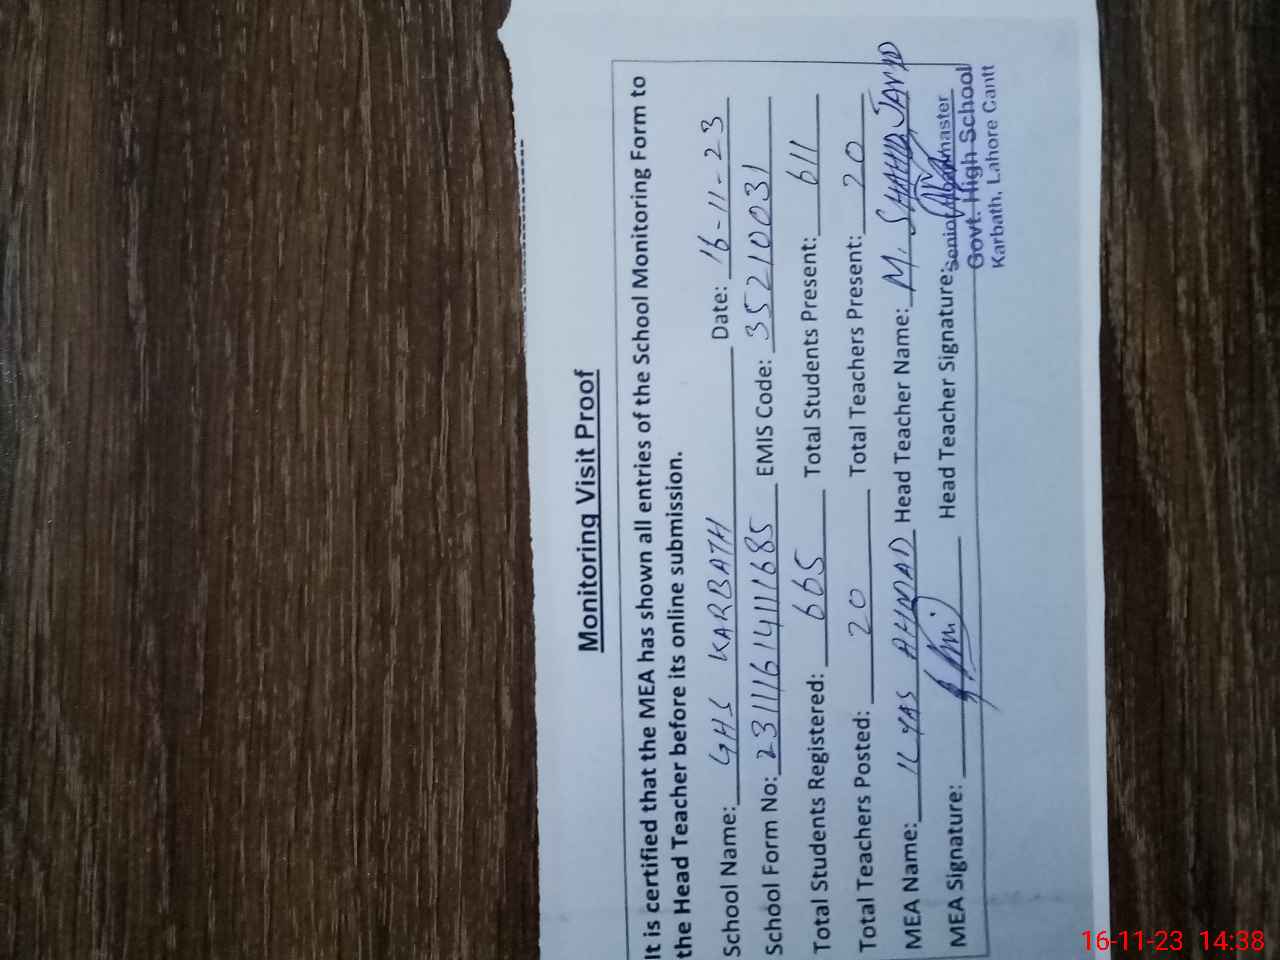 Monitoring Visit Proof
It is certified that the MEA has shown all entries of the School Monitoring Form to
the Head Teacher before its online submission.
School Name: GHS KARBATH Date: 16-11-23
School Form No: 231116141111685 EMIS Code: 35210031
Total Students Registered: 665 Total Students Present: 611
Total Teachers Posted: 20 Total Teachers Present: 20
MEA Name: ILYAS AHMAD Head Teacher Name: M. SHAHID JAVID
MEA Signature: Head Teacher Signature:
Senior Headmaster
Govt. High School
Karbath, Lahore Cantt
16-11-23 14:38